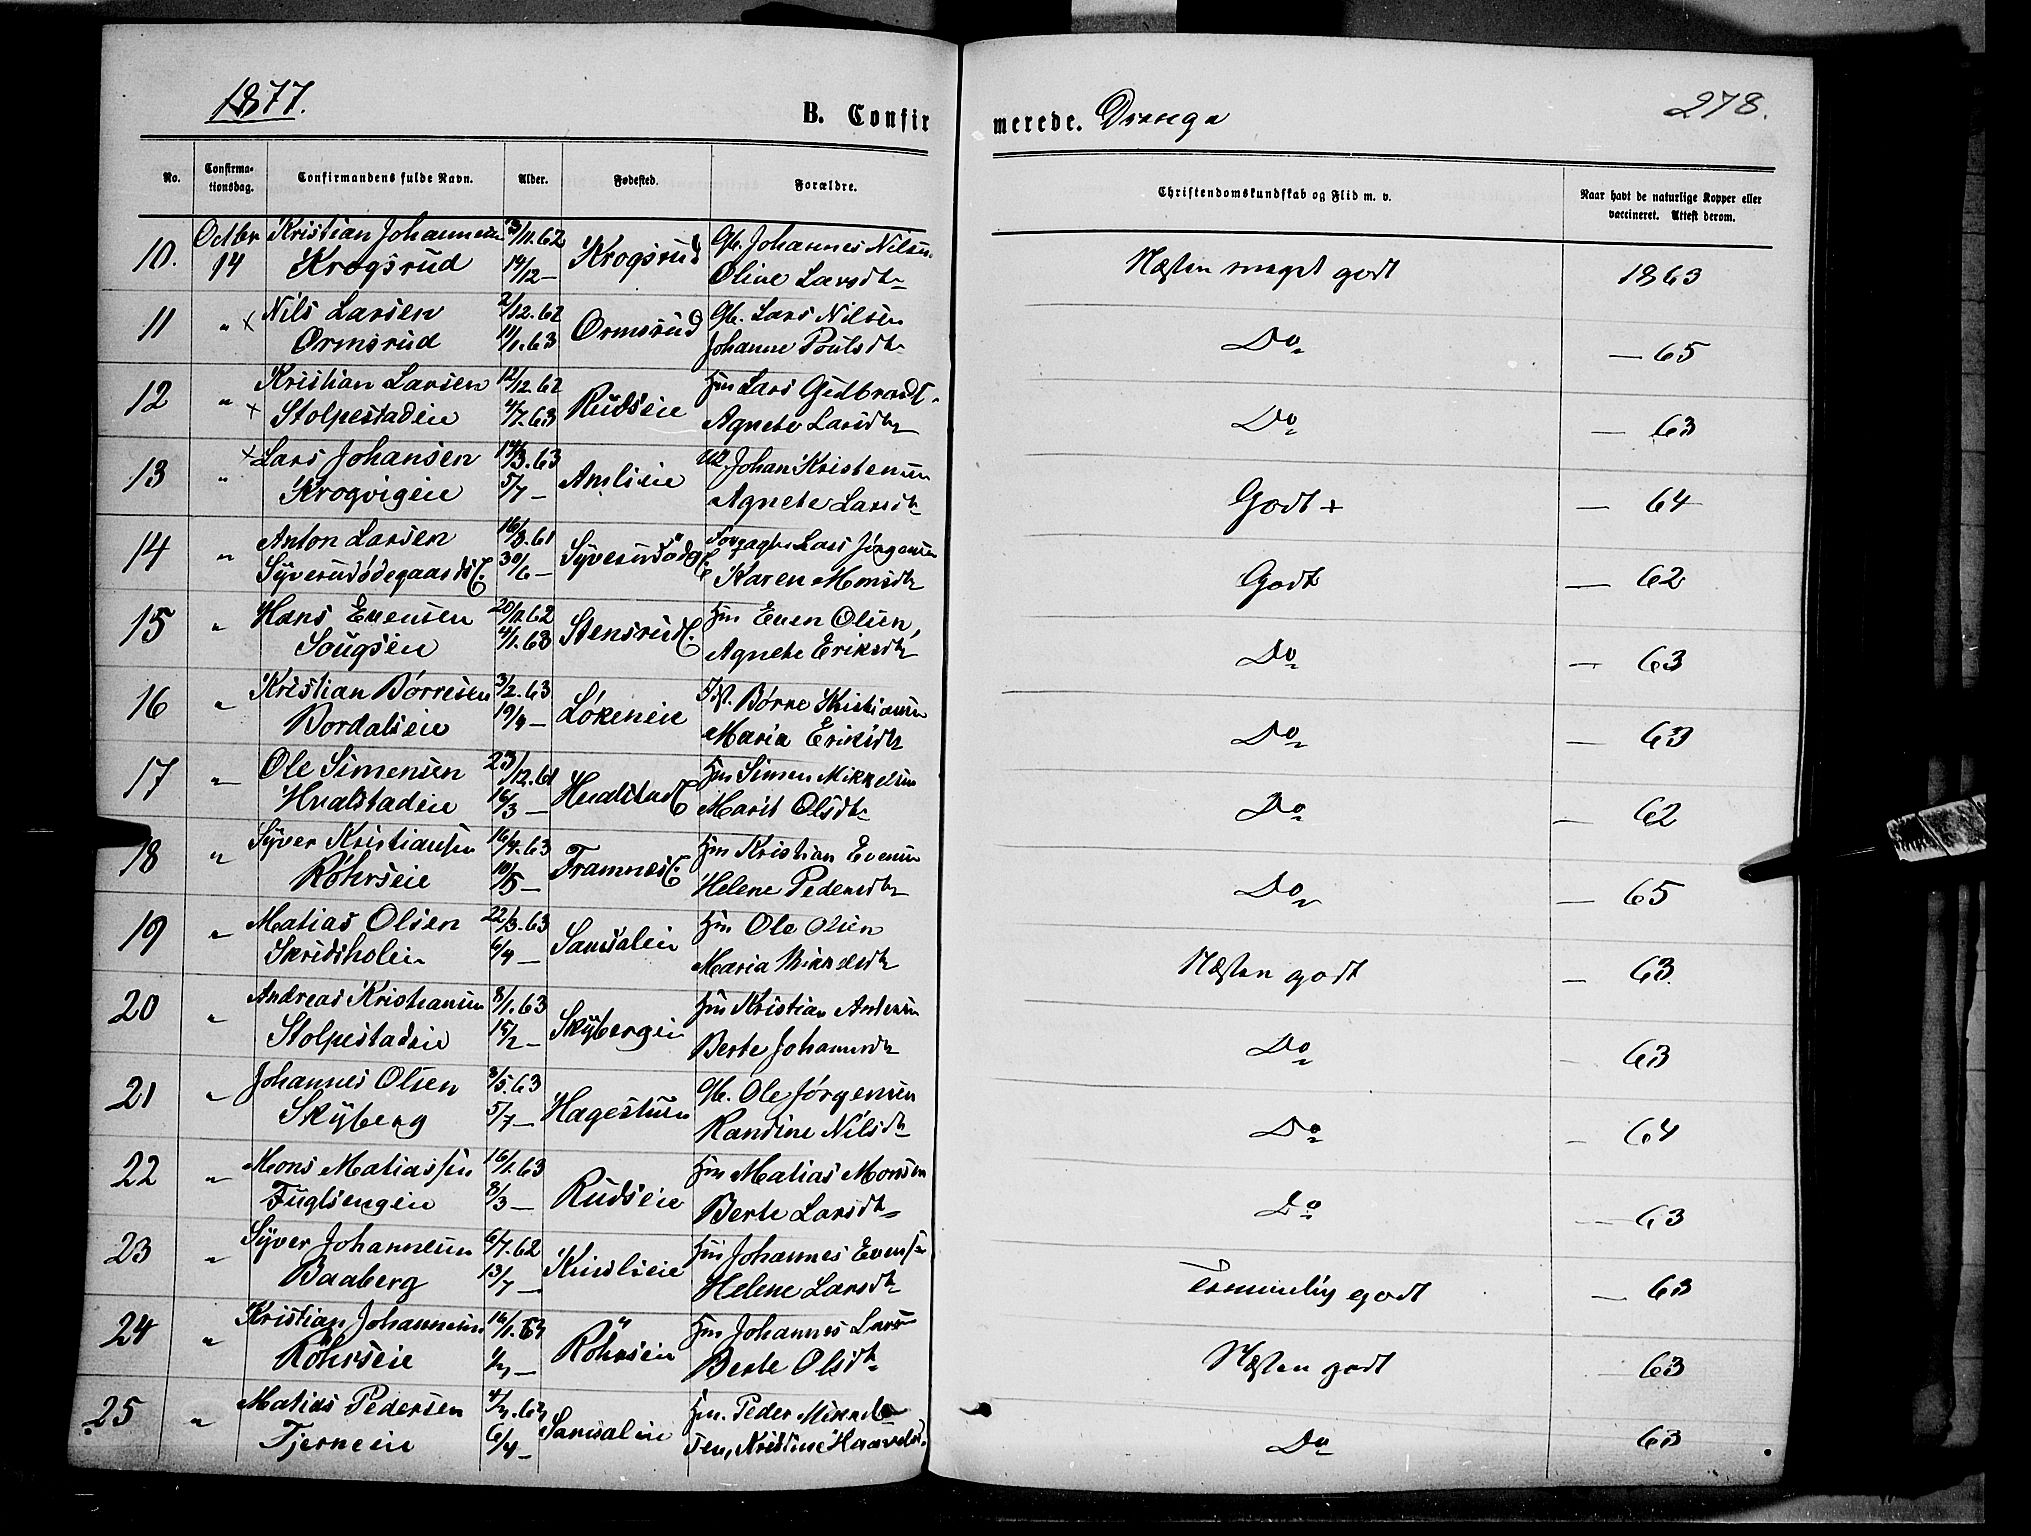 1877.
B. Confirmerede. Drenge
278.
No. Confirmationsdag. Confirmandens fulde Navn. Alder. Fødested. Forældre. Christendomskundskab og Flid m. v. Naar havt de naturlige Kopper eller vaccineret. Attest derom.
10. Octbr 14 Kristian Johannesen Krogsrud 3/11.62 14/12 — Krogsrud Gb. Johannes Nilsen Oline Larsdtr Næsten meget godt 1863
11 " × Nils Larsen Ormsrud 2/12.62 11/1.63 Ormsrud Gb. Lars Nilsen Johanne Poulsdtr Do — 65
12 " × Kristian Larsen Stolpestadeie 12/12.62 4/7.63 Rudseie Hm Lars Gulbrands. Agnete Larsdtr Do — 63
13 " × Lars Johansen Krogvigeie 14/3.63 5/7 — Amlieie Johan Kristensen Agnete Larsdtr Godt + — 64
14 " Anton Larsen SyverudødegaardsE. 16/3.61 30/6 — Syverudødg.E Forpagter Lars Jørgensen Karen Monsdtr Godt — 62
15 " Hans Evensen Sougsein 20/11.62 4/1.63 StensrudE. Hm Even Olsen, Agnete Eriksdtr Do — 63
16 " Kristian Børresen Bordalseie 3/2.63 19/4 — Løkeneie Børre Kristiansen Maria Eriksdtr Do — 63
17 " Ole Simensen Hvalstadeie 23/12.61 16/3 — HvalstadE Hm Simen Mikkelsen Marit Olsdtr Do — 62
18 " Syver Kristiansen Röhrseie 16/4.63 10/5 — FramnesE. Hm Kristian Evensen Helene Pedersdtr Do — 65
19 " Matias Olsen Skridsholein 22/3.63 6/4 — Samsalein Hm Ole Olsen Maria Mikkelsdtr Næsten godt — 63
20 " Andreas Kristiansen Stolpestadeie 8/1.63 15/2 — Skybergein Hm Kristian Andersen Berte Johannesdtr Do — 63
21 " Johannes Olsen Skyberg 3/5.63 5/7 — Hagestuen Gb. Ole Jørgensen Randine Nilsdtr Do — 64
22 " Mons Matiassen Fuglsengein 16/1.63 8/3 — Rudseie Hm Matias Monsen Berte Larsdtr Do — 63
23 " Syver Johannesen Baaberg 6/7.62 13/7 — Kinslieie Hm Johannes Evensen Helene Larsdtr Temmelig godt — 63
24 " Kristian Johannesen Röhrseie 16/1.63 Röhrsein Hm Johannes Lars Berte Olsdtr Næsten godt 63
25 " Matias Pedersen Tjerneie 6/4 — Samsalein Hm. Peder Mikkelsen, Kristine Haavelsd. Do 63